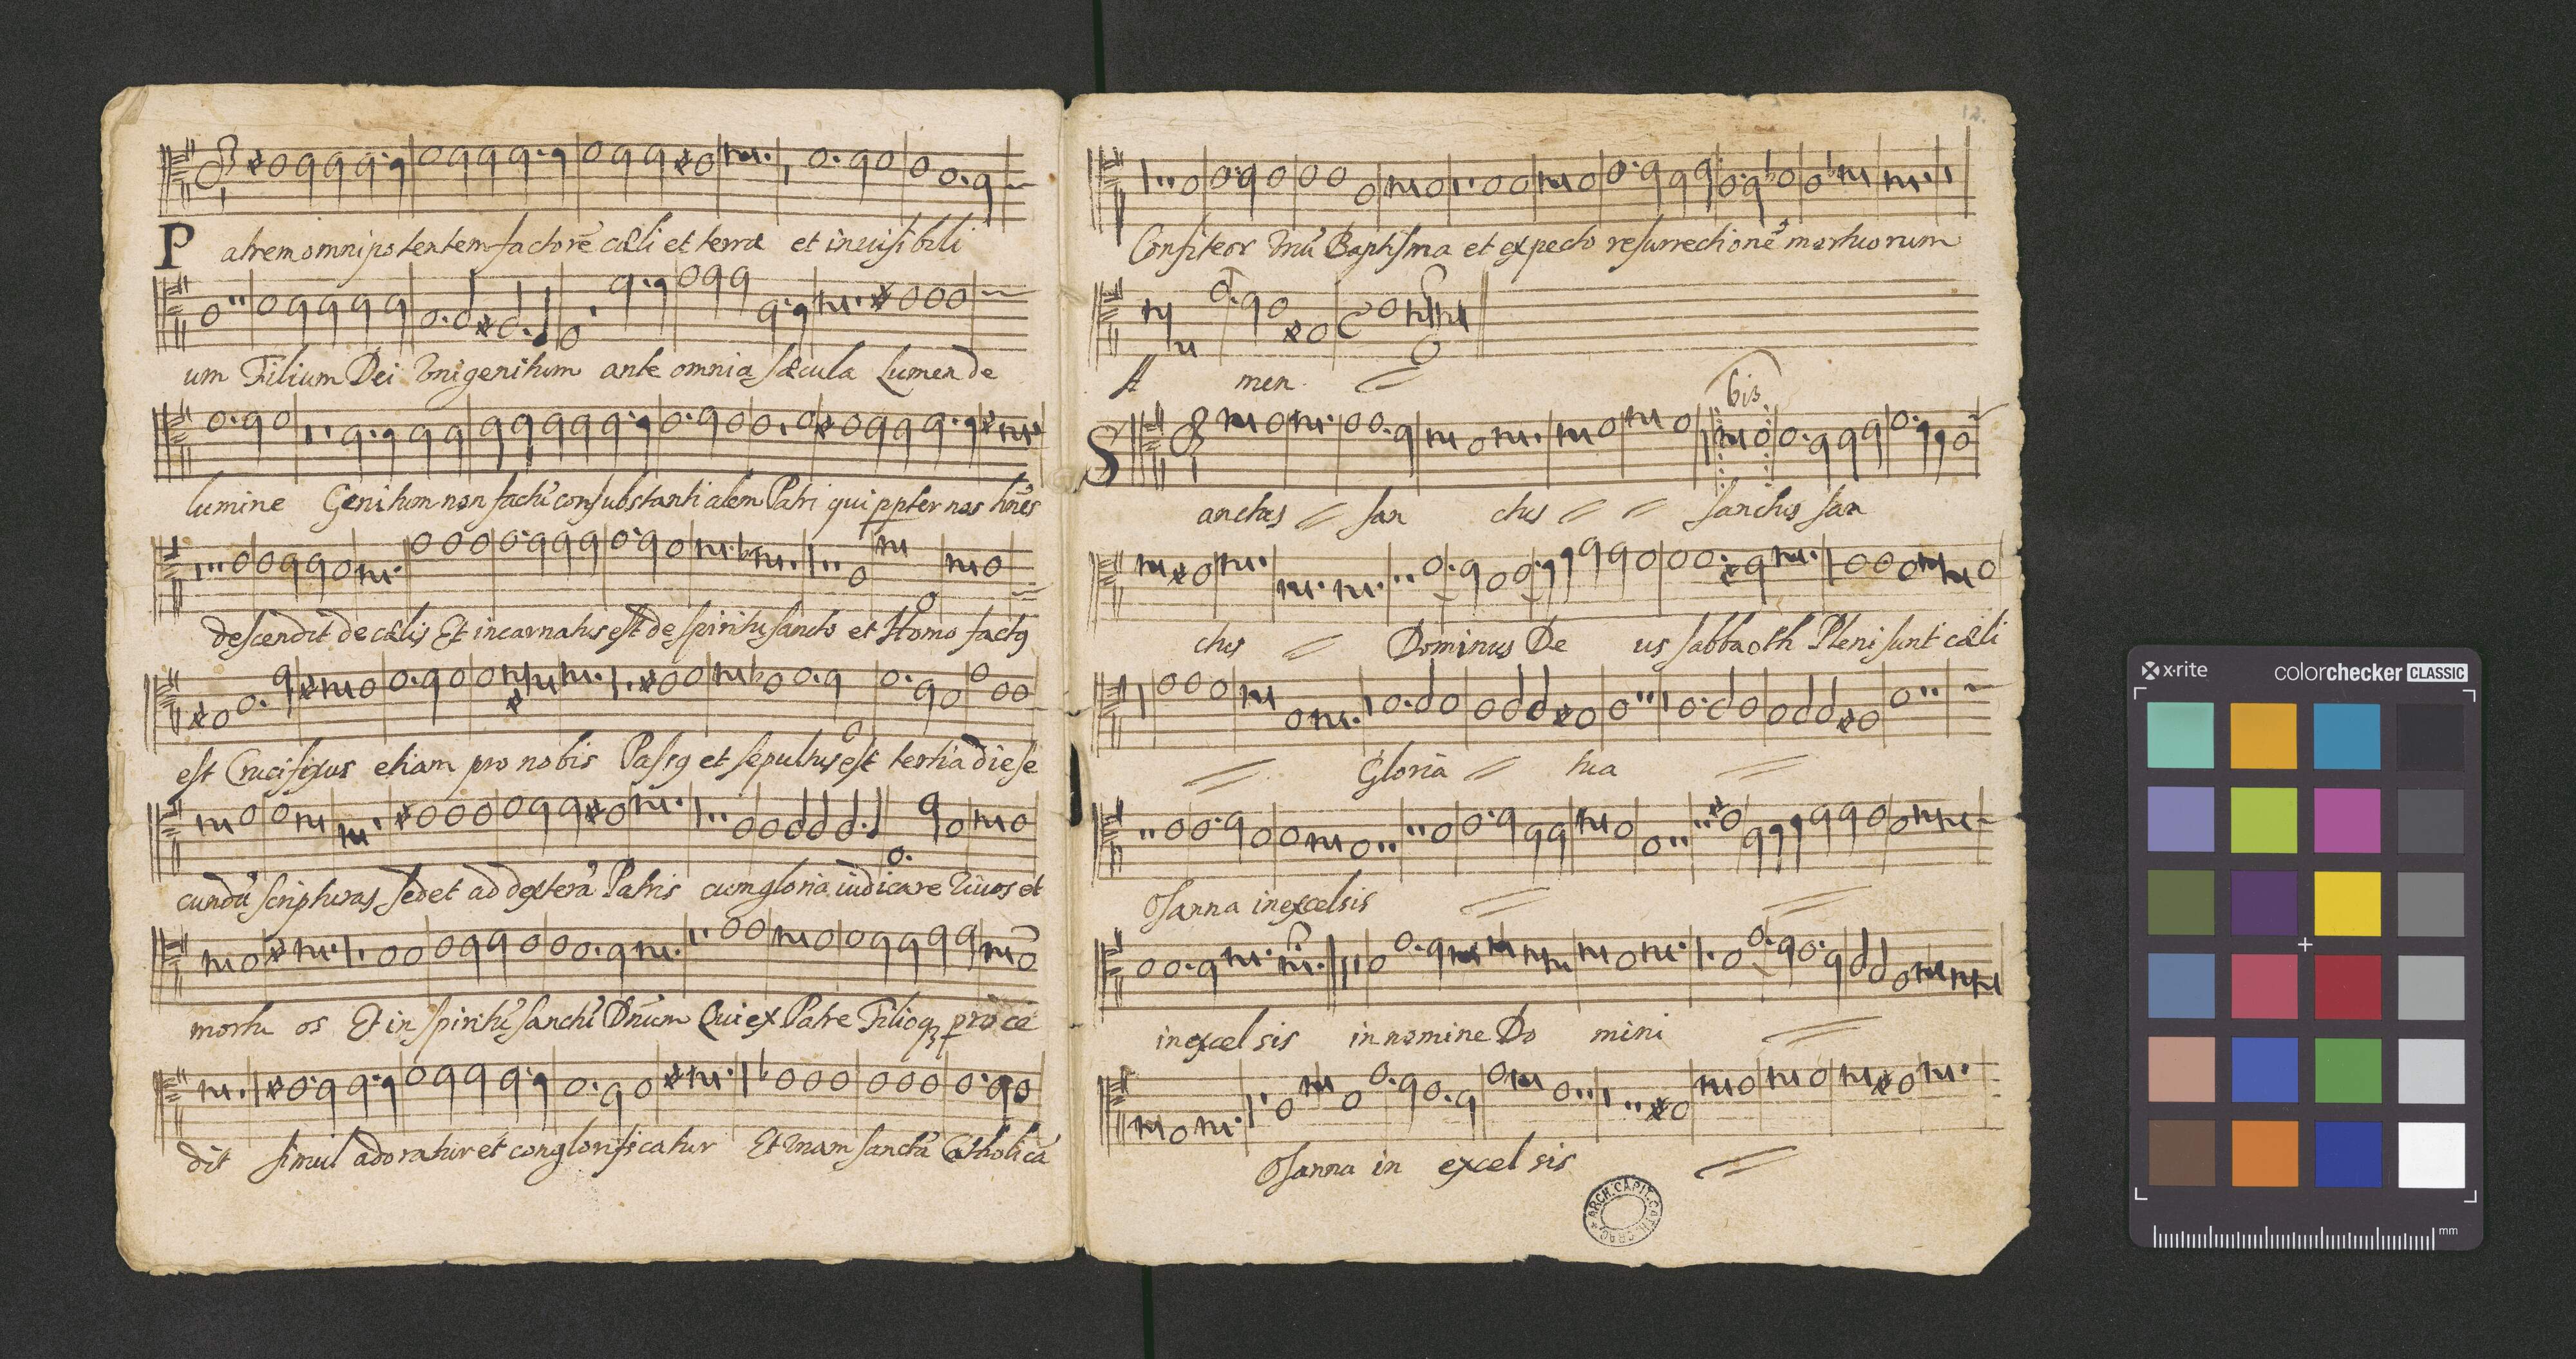 P atrem omnipotentem factorē cæli et terræ et inuisibili
um Filium Dei Vnigenitum ante omnia sæcula Lumen de
lumine Genitum non factũ consubstantialem Patri qui ppter nos hoēs
descendit de cælis Et incarnatus est de spiritu sancto et Homo factꝰ
est Crucifixus etiam pro nobis Passꝰ et sepultus est tertia die se
cundũ scripturas sedet ad dexterã Patris cum gloria iudicare Viuos et
mortu os Et in spiritũ sanctũ Dñum Qui ex Patre Filioqꝫ proce
dit simul adoratur et conglorificatur Et Vnam sanctã Catholicã
12.
Confiteor Vnũ Baptisma et expecto resurrectionē mortuorum
A men
bis
S anctus san ctus sanctus san
ctus Dominus De us sabbaoth Pleni sunt cæli
Gloria tua
Osanna in excelsis
in excel sis in nomine Do mini
Osanna in excel sis
ARCH. CAPIT. CATH. CRAC.
x·rite colorchecker CLASSIC
mm